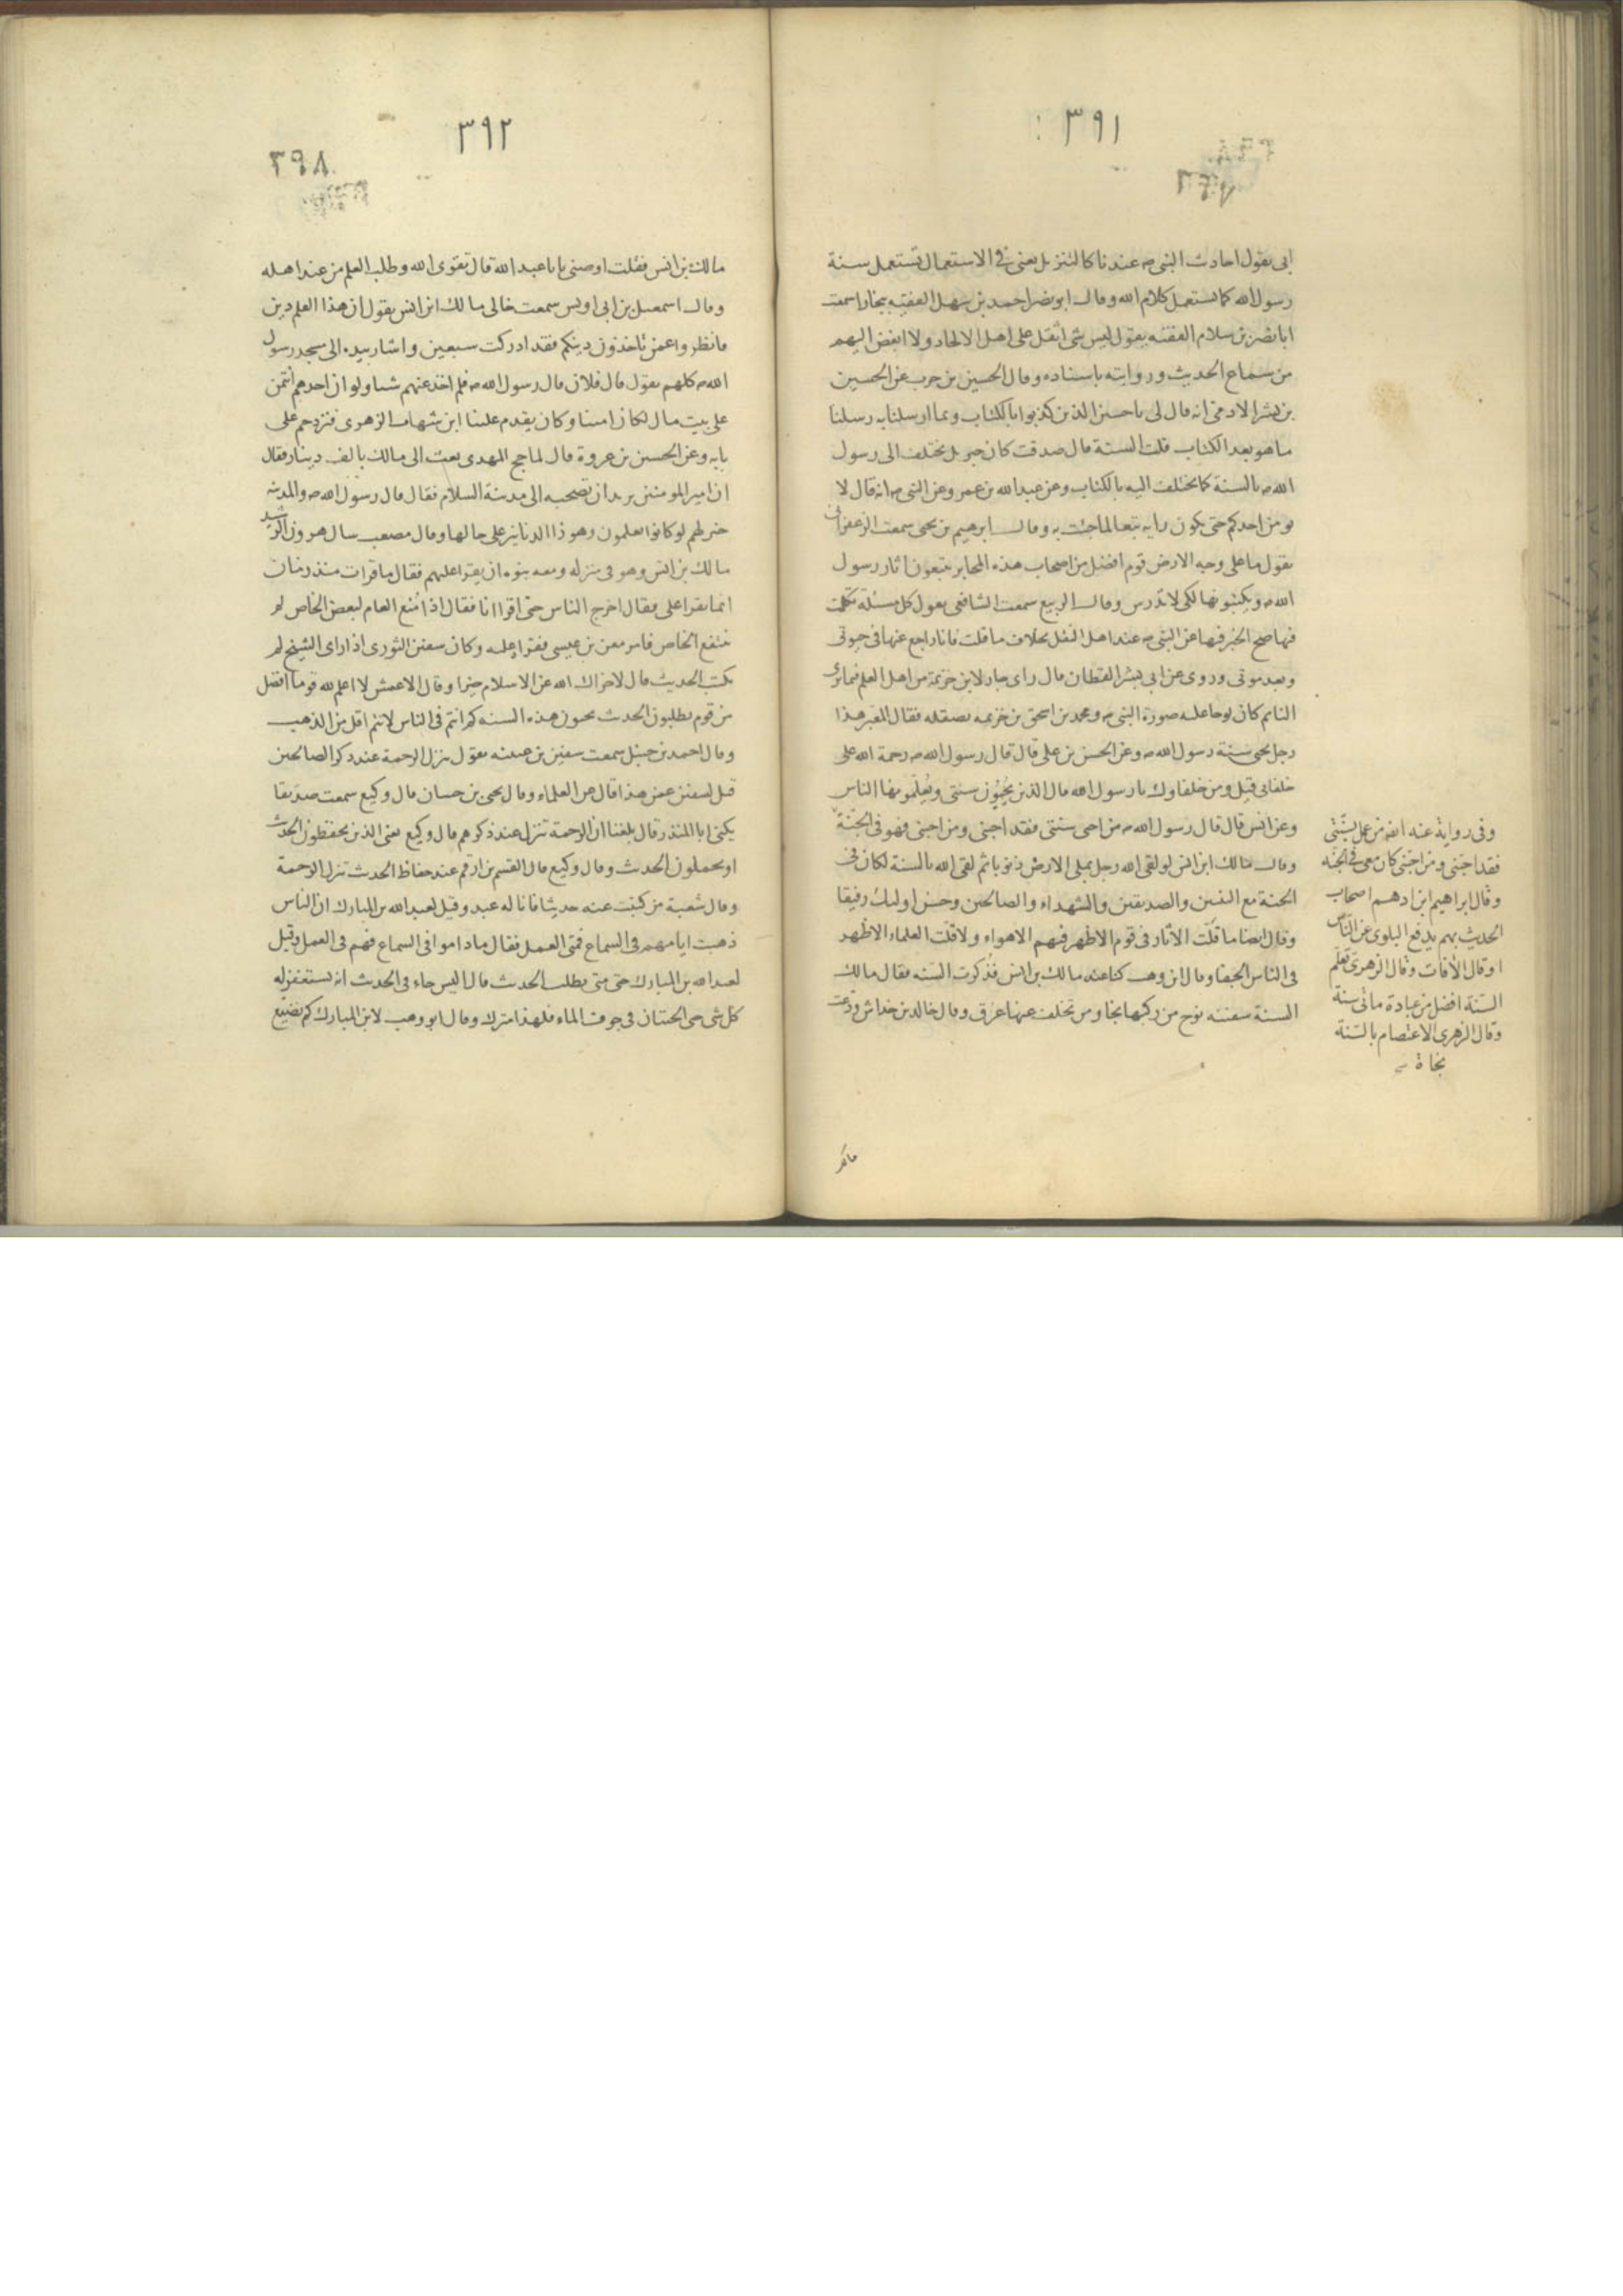 ٣٩١
ابى يقول احاديث النبى م عندنا كالتنزيل يعنى فى الاستعمال تستعمل سنة
رسول الله كما يستعمل كلام الله وقال ابو نصر احمد بن سهل الفقيه ببخارا سمعت
ابا نصر بن سلام الفقيه يقول ليس شى اثقل على اهل الالحاد ولا ابغض اليهم
من سماع الحديث وروايته باسناده وقال الحسين بن حرب عن الحسين
بن بشر الادمى انه قال لى يا حسين الذين كذبوا بالكتاب وبما ارسلنا به رسلنا
ما هو بعد الكتاب قلت السنة قال صدقت كان جبريل يختلف الى رسول
الله م بالسنة كما يختلف اليه بالكتاب وعن عبد الله بن عمر وعن النبى م انه قال لا
يومن احدكم حتى يكون رايه تبعا لما جئت به وقال ابرهيم بن يحيى سمعت الزعفرانى
يقول ما على وجه الارض قوم افضل من اصحاب هذه المحابر يتبعون اثار رسول
الله م ويكتبونها لكى لا تدرس وقال الربيع سمعت الشافعى يقول كل مسئلة تكلمت
فيها صح الخبر فيها عن النبى م عند اهل النقل بخلاف ما قلت فانا راجع عنها فى حيوتى
وبعد موتى وروى عن ابى بشر القطان قال راى جار لابن خزيمة من اهل العلم فيما يرى
النائم كان لوحا عليه صورة النبى م ومحمد بن اسحق بن خزيمه يصقله فقال المعبر هذا
رجل يحيى سنة رسول الله م وعن الحسن بن على قال قال رسول الله م رحمة الله على
خلفائى قيل ومن خلفاوك يا رسول الله قال الذين يحيون سنتى ويعلمونها الناس
وعن انس قال قال رسول الله م من احى سنتى فقد احبنى ومن احبنى فهو فى الجنة
وقال مالك ابن انس لو لقى الله رجل بملى الارض ذنوبا ثم لقى الله بالسنة لكان فى
الجنة مع النبين والصديقين والشهداء والصالحين وحسن اوليك رفيقا
وقال ايضا ما قلت الاثار فى قوم الا ظهر فيهم الاهواء ولا قلت العلماء الا ظهر
فى الناس الجفا وقال ابن وهب كنا عند مالك بن انس فذكرت السنه فقال مالك
السنة سفينه نوح من ركبها نجا ومن تخلف عنها غرق وقال خالد بن خداش ودعت
وفى رواية عند انه من عمل بسنتى
فقد احبنى ومن احبنى كان معى فى الجنه
وقال ابراهيم ابن ادهم اصحاب
الحديث بهم يدفع البلوى عن الناس
او قال الافات وقال الزهرى تعلم
السنة افضل من عبادة مائى سنة
وقال الزهرى الاعتصام بالسنة
نجاة
٣٩٢
٣٩٨
مالك بن انس فقلت اوصنى يا با عبد الله قال تقوى الله وطلب العلم من عند اهله
وقال اسمعيل بن ابى اويس سمعت خالى مالك ابن انس يقول ان هذا العلم دين
فانظروا عمن تاخذون دينكم فقد ادركت سبعين واشار بيده الى مسجد رسول
الله م كلهم يقول قال فلان قال رسول الله م فلم اخذ عنهم شيا ولو ان احدهم ائتمن
على بيت مال لكان امينا وكان يقدم علينا ابن شهاب الزهرى فنزدحم على
بابه وعن الحسين بن عروة قال لما حج المهدى بعث الى مالك بالف دينار فقال
ان امير المومنين يريد ان تصحبه الى مدينة السلام فقال قال رسول الله م والمدينه
خير لهم لو كانوا يعلمون وهو ذا الدنانير على حالها وقال مصعب سال هرون الرشيد
مالك بن انس وهو فى منزله ومعه بنوه ان يقرا عليهم فقال ما قرات منذ زمان
انما يقرا على فقال اخرج الناس حتى اقرا انا فقال اذا منع العام لبعض الخاص لم
ينتفع الخاص فامر معن بن عيسى فقرا عليه وكان سفين الثورى اذا راى الشيخ لم
يكتب الحديث قال لا جزاك الله عن الاسلام خيرا وقال الاعمش لا اعلم لله قوما افضل
من قوم يطلبون الحديث يحبون هذه السنه كم انتم فى الناس لانتم اقل من الذهب
وقال احمد بن حنبل سمعت سفين بن عيينه يقول تنزل الرحمة عند ذكر الصالحين
قيل لسفين عمن هذا قال عن العلماء وقال يحيى بن حسان قال وكيع سمعت صديقا
يكنى ابا المنذر قال بلغنا ان الرحمة تنزل عند ذكرهم قال وكيع يعنى الذين يحفظون الحديث
او يحملون الحديث وقال وكيع قال القسم بن ارقم عند حفاظ الحديث تنزل الرحمة
وقال شعبة من كتبت عنه حديثا فانا له عبد وقيل لعبد الله بن المبارك ان الناس
ذهبت ايامهم فى السماع فمتى العمل فقال ما داموا فى السماع فهم فى العمل وقيل
لعبد الله بن المبارك حتى متى يطلب الحديث قال اليس جاء فى الحديث انه يستغفر له
كل شى حى الحيتان فى جوف الماء فلهذا مترك وقال ابو وهب لابن المبارك كم تضيع